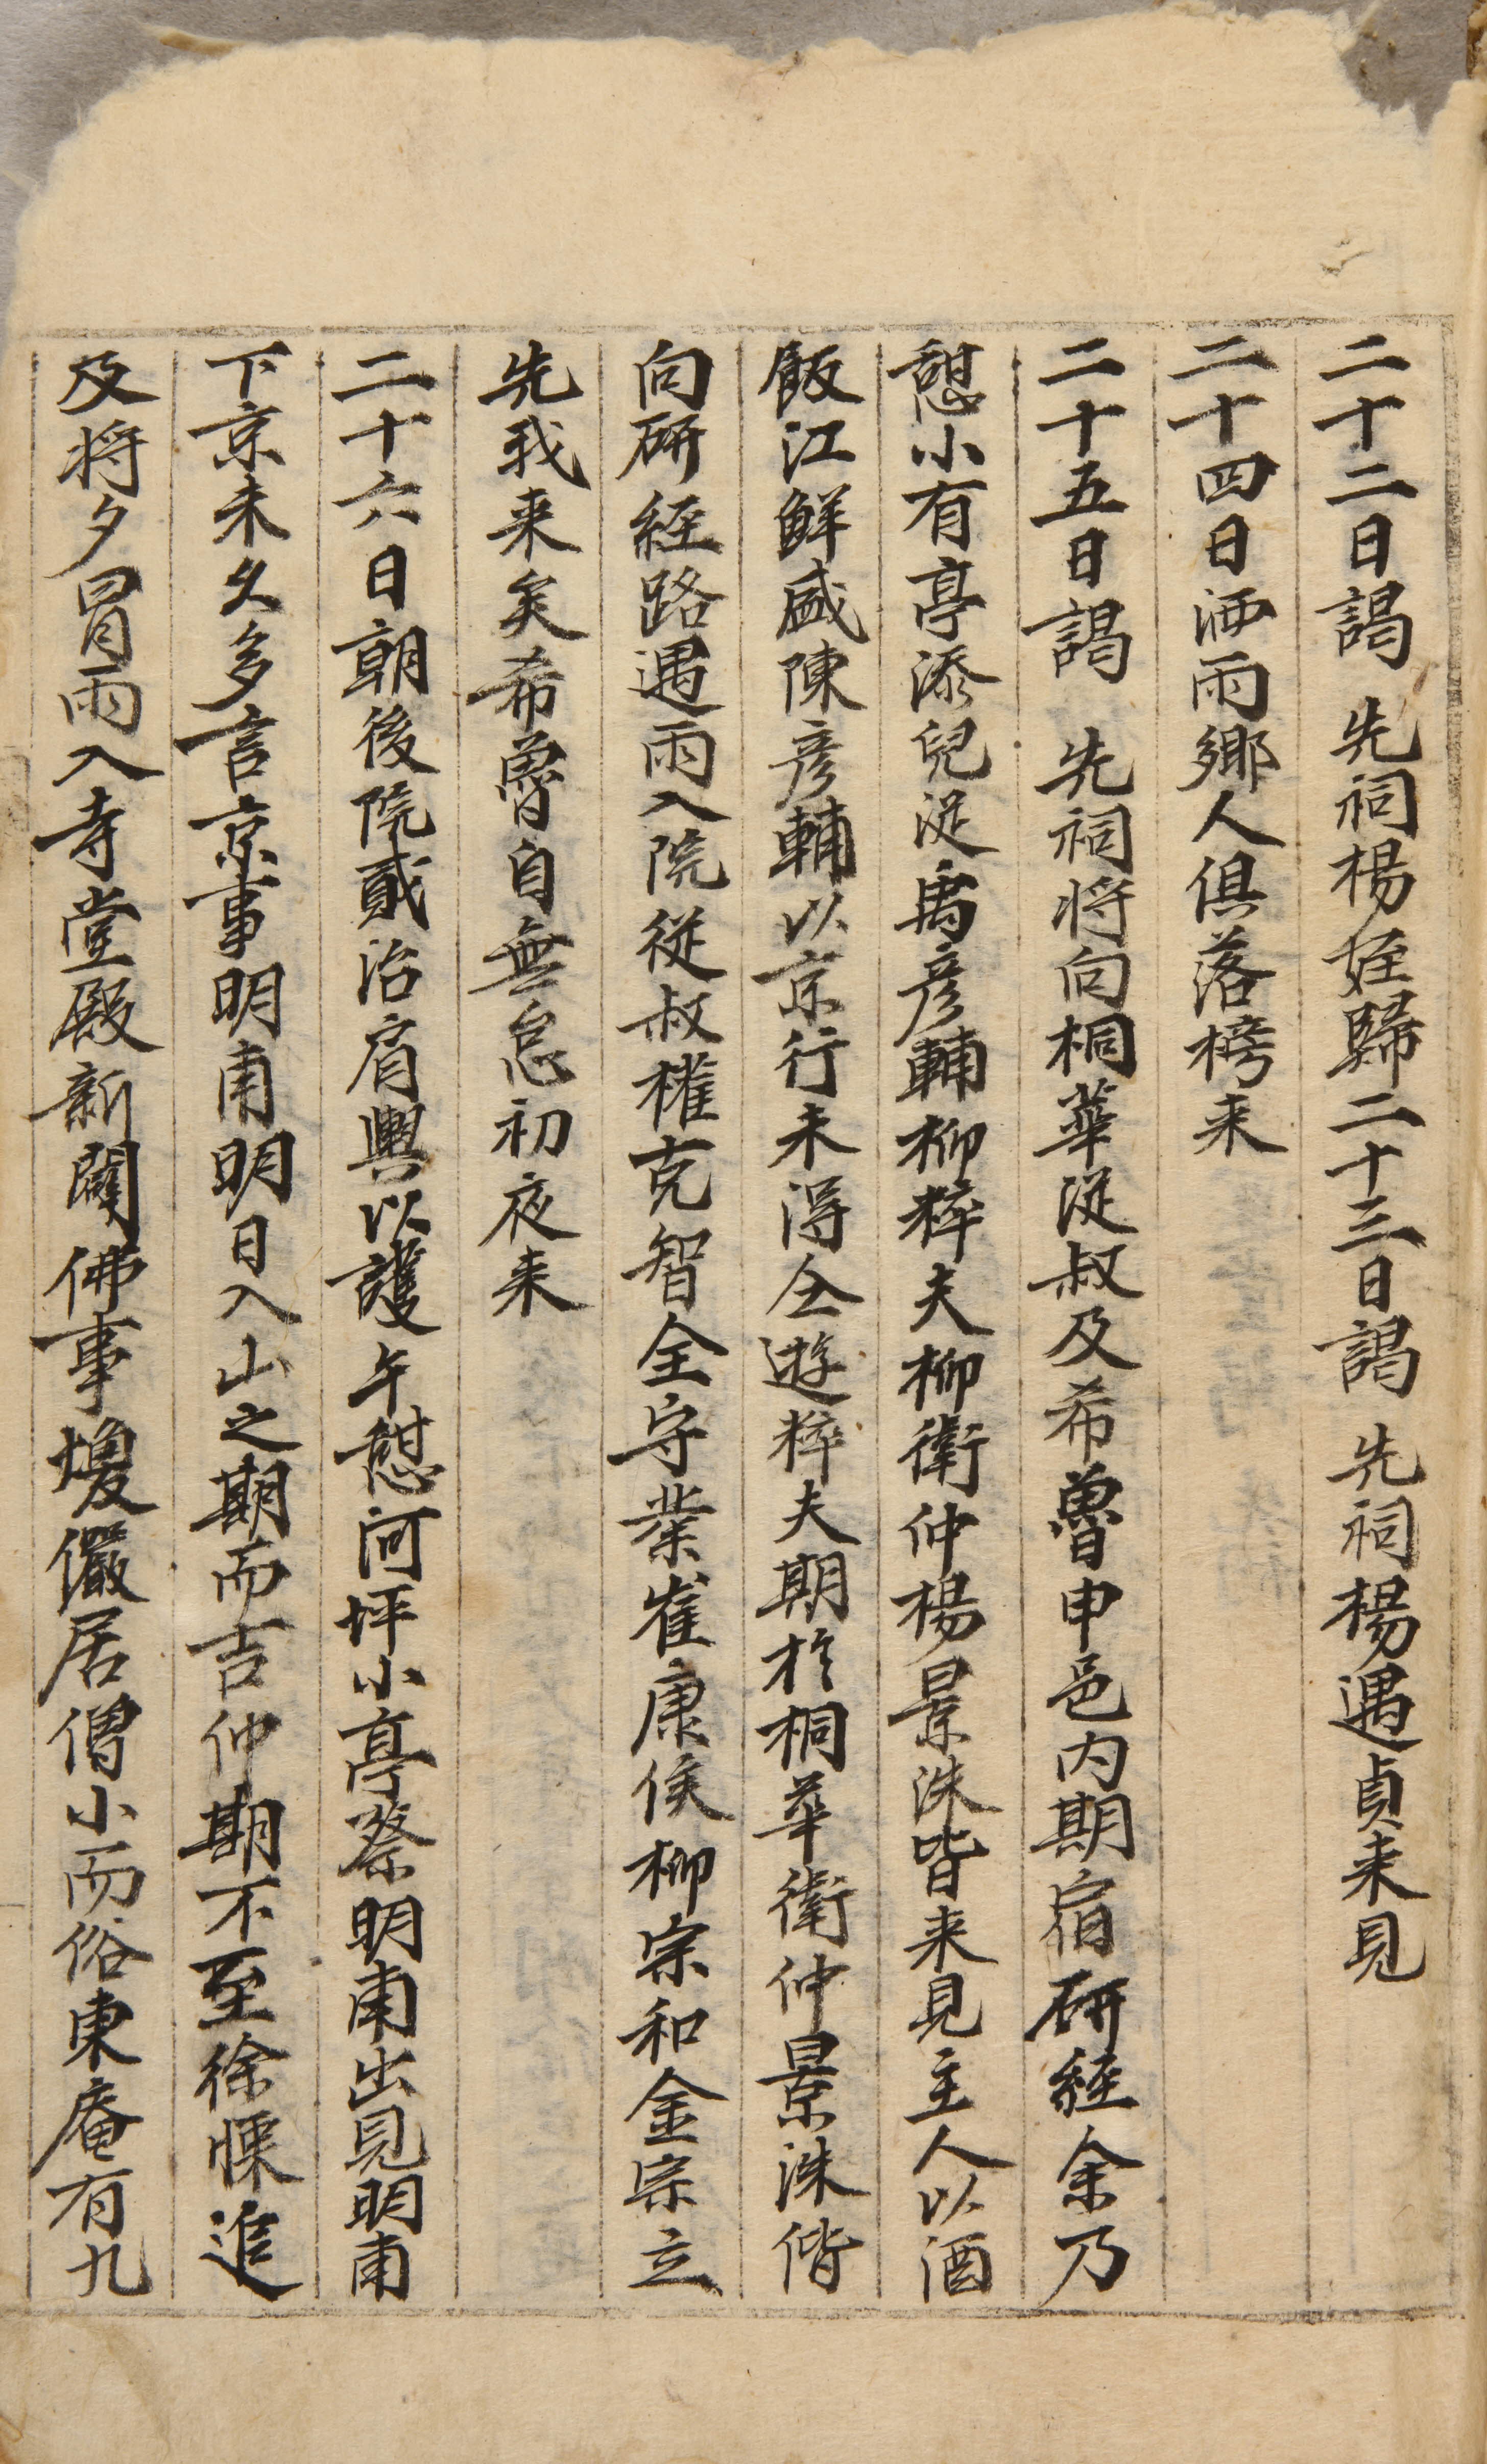 二十二日謁 先祠楊姪歸二十三日謁 先祠楊遇貞来見
二十四日洒雨鄉人俱落榜来
二十五日謁 先祠将向桐華從叔及希魯申邑内期宿硏經余乃
憇小有亭添兒從禹彦輔柳粹夫柳衛仲楊景洙皆来見主人以酒
飯江鮮盛陳彦輔以京行未得仝遊粹夫期於桐華衛仲景洙偕
向硏經路遇雨入院從叔權克智全守業崔康侯柳宗和金宗立
先我来矣希魯自無怠初夜来
二十六日朝後院貳治肩輿以護午憇河坪小亭蔡明甫出見明甫
下京未久多言京事明甫明日入山之期而吉仲期不至徐慄追
及将夕冒雨入寺堂殿新闢佛事㙛儼居僧小而俗東庵有九